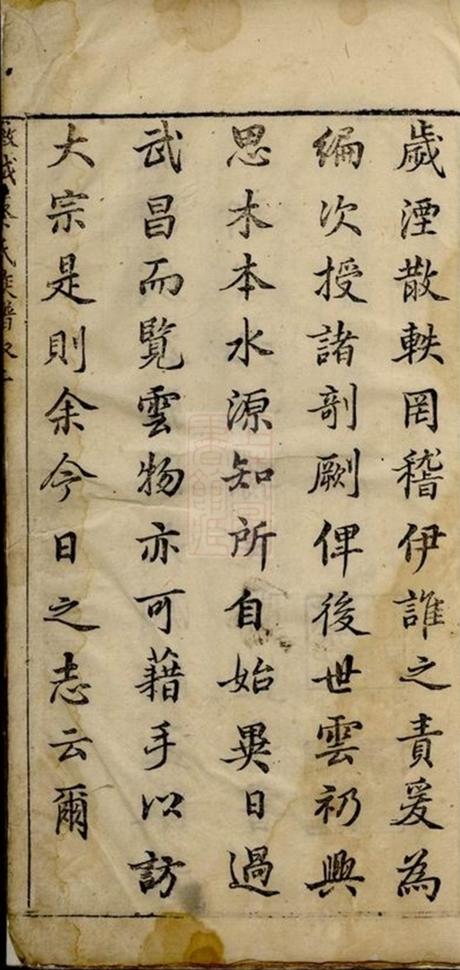 歲湮散軼罔稽伊誰之責爰為
編次授諸剞劂俾後世雲礽興
思木本水源知所自始異日過
武昌而覽雲物亦可藉手以訪
大宗是則余今日之志云爾